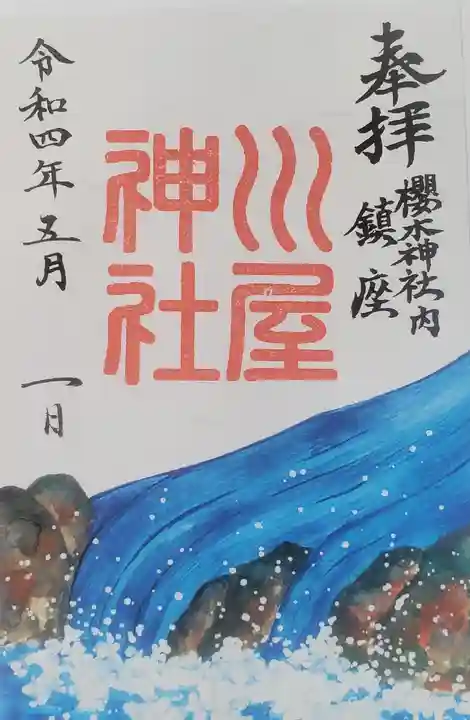 奉拝
櫻木神社内
鎮座
川屋
神社
令和四年五月一日